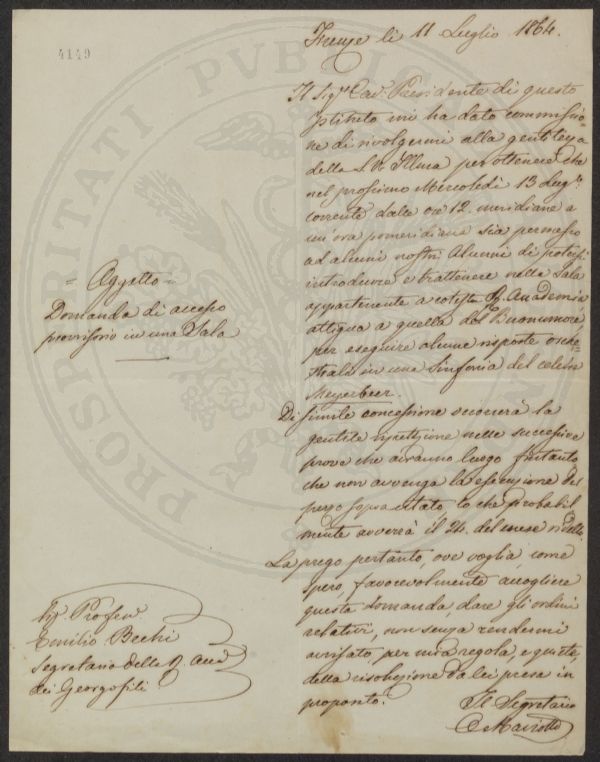 4149
Firenze li 11 Luglio 1864.
Il Sigr. Cav. Presidente di questo
Istituto mi ha dato commissio-
ne di rivolgermi alla gentilezza
della S. V. Illma per ottenere che
nel prossimo Mercoledì 13 Lugo.
corrente dalle ore 12. meridiane a
un'ora pomeridiana sia permesso
ad alcuni nostri Alunni di potersi
introdurre e trattenere nella Sala
appartenente a cotesta R. Accademia
attigua a quella del Buonumore,
per eseguire alcune risposte orche-
strali in una Sinfonia del celebre
Meyerbeer.
Di simile concessione occorrerà la
gentile ripetizione nelle successive
prove che avranno luogo fintanto
che non avvenga la esecuzione del
pezzo sopracitato, lo che probabil
mente avverrà il 24. del mese
La prego pertanto, ove voglia, come
spero, favorevolmente accogliere
questa domanda dare gli ordini
relativi, non senza rendermi
avvisato per mia regola, e quiete,
della risoluzione da lei presa in
proposito.
Il Segretario
E Mariotti
= Oggetto =
Domanda di accesso
provvisorio in una Sala
Professr.
Emilio Bechi
Segretario della R. Accad
dei Georgofili
PROSPERITATI PUBLICAE